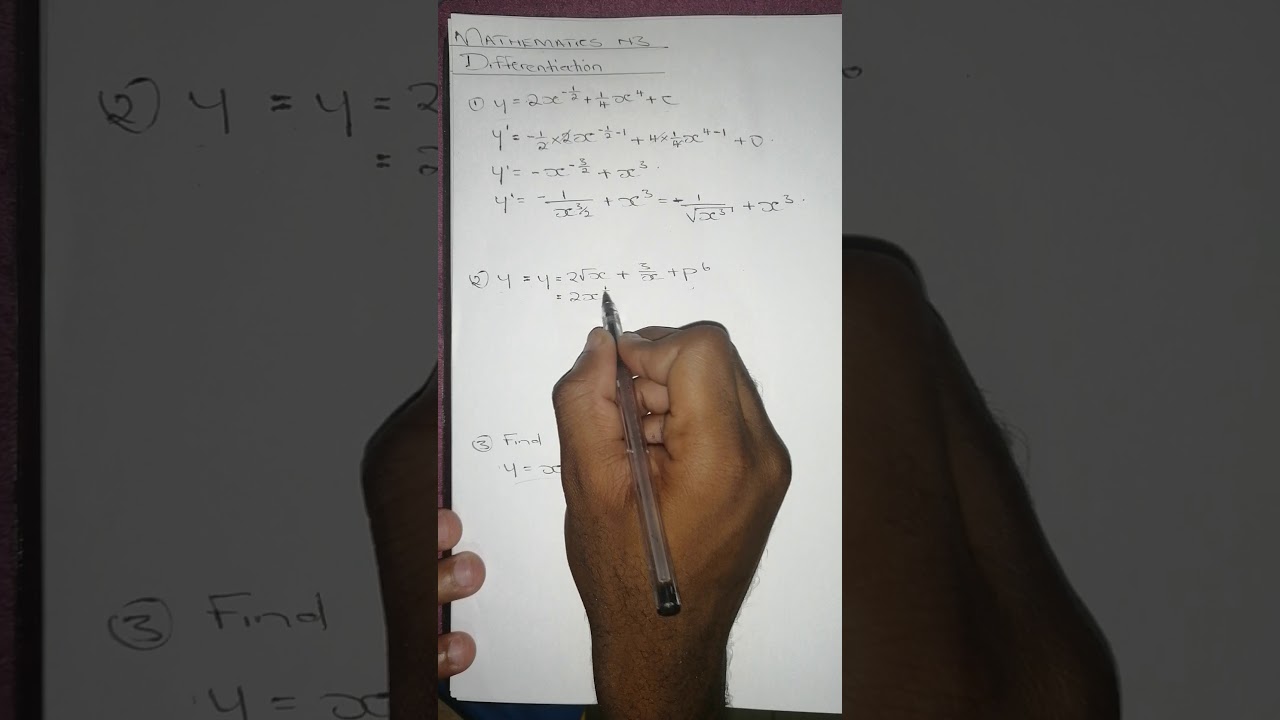 MATHEMATICS N3
Differentiation
① y = 2x^{-1/2} + 1/4 x^4 + c
y' = -1/2 × 2x^{-1/2-1} + 4 × 1/4 x^{4-1} + 0.
y' = -x^{-3/2} + x^3.
y' = -1/x^{3/2} + x^3 = -1/√x^3 + x^3.
② y = y = 2√x + 3/x + p^6
= 2x
③ Find
y = x